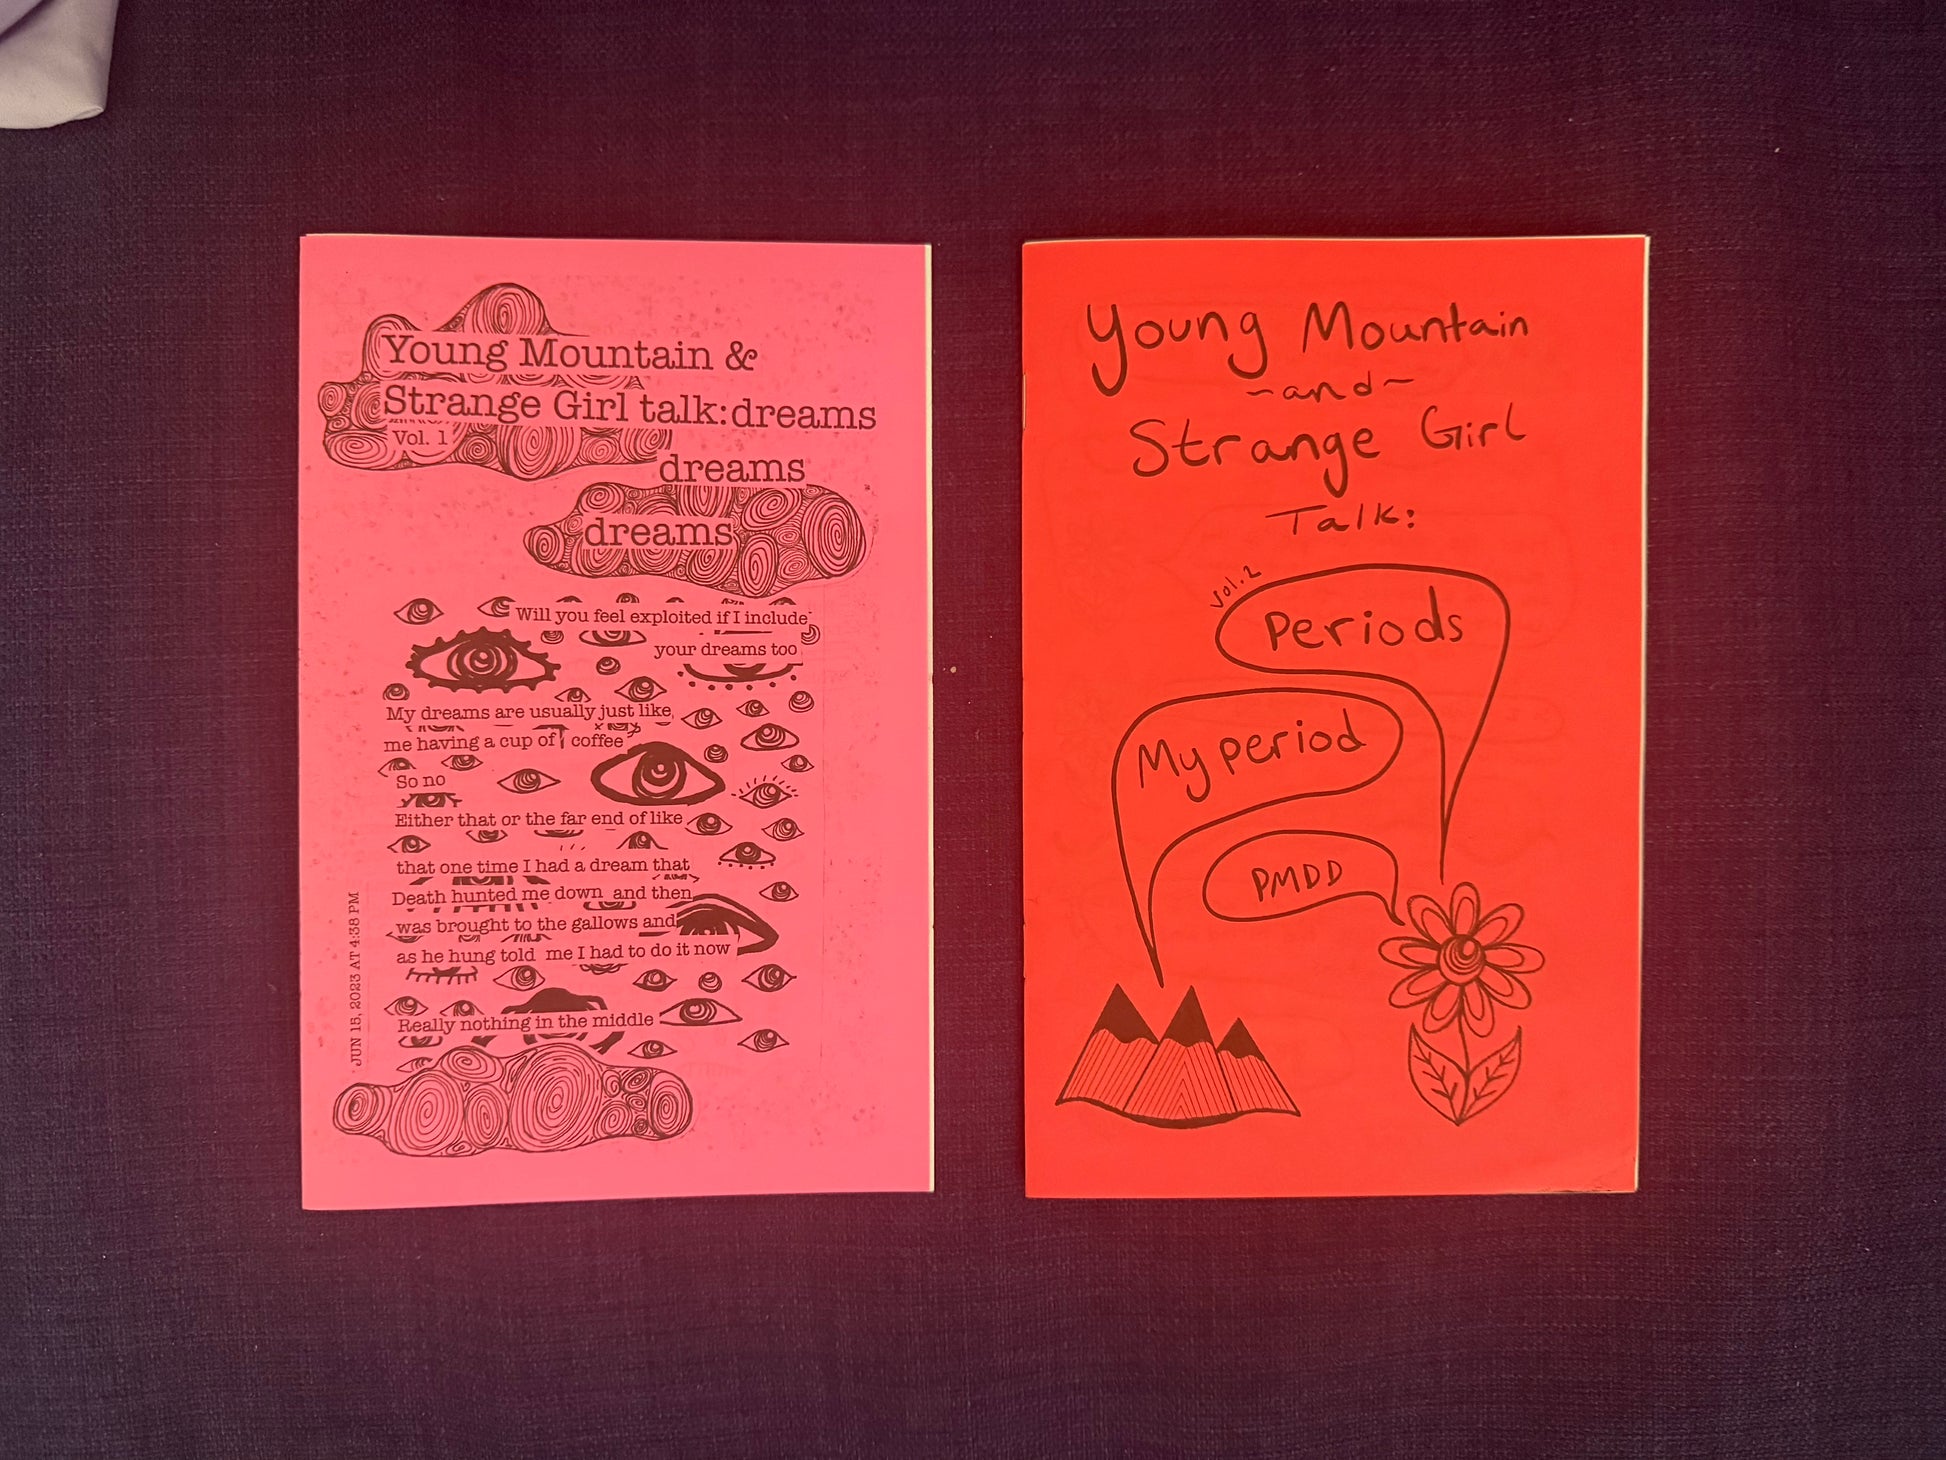 Young Mountain &
Strange Girl talk: dreams
Vol. 1
dreams
dreams
Will you feel exploited if I include
your dreams too
My dreams are usually just like
me having a cup of coffee
So no
Either that or the far end of like
that one time I had a dream that
Death hunted me down and then
was brought to the gallows and
as he hung told me I had to do it now
Really nothing in the middle
JUN 15, 2023 AT 4:38 PM
Young Mountain
~and~
Strange Girl
Talk:
Vol. 2
Periods
My period
PMDD